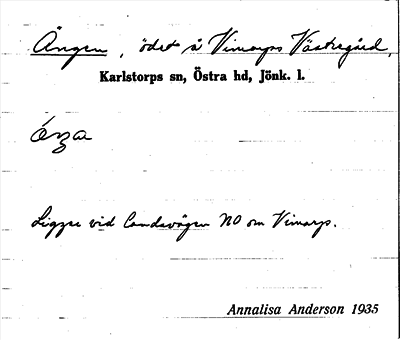 Ängen, ödet å Vimarps Västregård,
Karlstorps sn, Östra hd, Jönk. l.
Ligger vid landsvägen NO om Vimarp.
Annalisa Anderson 1935